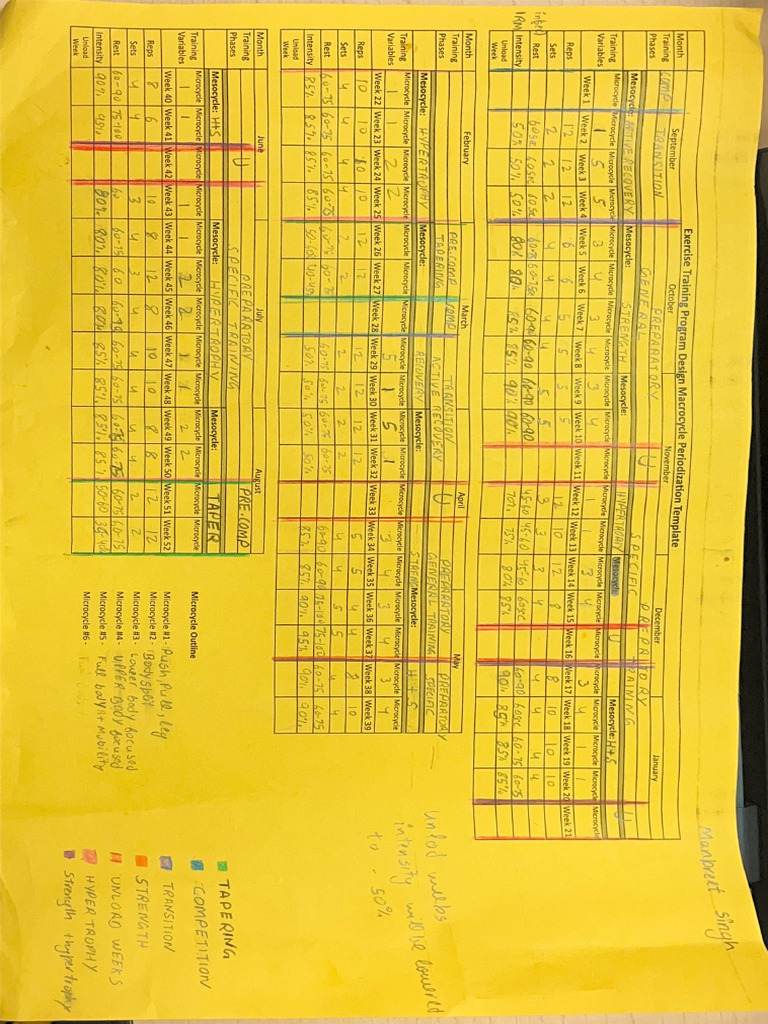 Manpreet Singh
Exercise Training Program Design Macrocycle Periodization Template
Month September October November December January
Training Phases COMP TRANSITION PREPARATORY GENERAL U SPECIFIC PREPARATORY TRAINING
Mesocycle: ACTIVE RECOVERY Mesocycle: STRENGTH Mesocycle: HYPERTROPHY Mesocycle: U Mesocycle: H+S U
Training Variables Microcycle Microcycle Microcycle Microcycle Microcycle Microcycle Microcycle Microcycle Microcycle Microcycle Microcycle Microcycle Microcycle Microcycle Microcycle Microcycle Microcycle Microcycle Microcycle Microcycle Microcycle
1 5 5 3 4 3 4 3 4 1 3 4 3 4 1 1
Week 1 Week 2 Week 3 Week 4 Week 5 Week 6 Week 7 Week 8 Week 9 Week 10 Week 11 Week 12 Week 13 Week 14 Week 15 Week 16 Week 17 Week 18 Week 19 Week 20 Week 21
Reps 12 12 12 6 6 5 5 5 5 12 10 12 8 8 10 10 10
Sets 2 2 2 4 4 4 4 5 5 3 3 3 4 4 4 4 4
Rest 60sec 60sec 60-75 60-75sec 60-90 60-90 60-90 60-90 45-60 45-60 45-60 60sec 60-90 60sec 60-75 60-75
Intensity 50% 50% 50% 80% 80% 85% 85% 90% 90% 70% 75% 80% 85% 90% 85% 85% 85%
Unload Week
unlod weebs
intensity will be lowered
to - 50%
Month February March April May
Training Phases PRE.COMP TAPERING COMP TRANSITION ACTIVE RECOVERY U PREPARATORY GENERAL TRAINING PREPARATORY SPECIFIC
Mesocycle: HYPERTROPHY Mesocycle: RECOVERY Mesocycle: STRENGTH Mesocycle: H+S
Training Variables Microcycle Microcycle Microcycle Microcycle Microcycle Microcycle Microcycle Microcycle Microcycle Microcycle Microcycle Microcycle Microcycle Microcycle Microcycle Microcycle Microcycle Microcycle
1 1 2 2 5 1 5 1 3 4 3 4 3 4
Week 22 Week 23 Week 24 Week 25 Week 26 Week 27 Week 28 Week 29 Week 30 Week 31 Week 32 Week 33 Week 34 Week 35 Week 36 Week 37 Week 38 Week 39
Reps 10 10 10 10 12 12 12 12 12 12 5 5 4 4 8 10
Sets 4 4 4 4 2 2 2 2 2 2 4 4 5 5 4 4
Rest 60-75 60-75 60-75 60-75 60-75 60-75 60-75 60-75 60-75 60-75 60-90 60-90 75-100 75-100 60-75 60-75
Intensity 85% 85% 85% 85% 50-60 50% 50% 50% 50% 85% 85% 90% 95% 90% 90%
Unload Week
Month June July August
Training Phases U PREPARATORY SPECIFIC TRAINING PRE.COMP
Mesocycle: H+S Mesocycle: HYPERTROPHY Mesocycle: TAPER
Training Variables Microcycle Microcycle Microcycle Microcycle Microcycle Microcycle Microcycle Microcycle Microcycle Microcycle Microcycle Microcycle Microcycle
1 1 1 1 2 2 1 1 2 2
Week 40 Week 41 Week 42 Week 43 Week 44 Week 45 Week 46 Week 47 Week 48 Week 49 Week 50 Week 51 Week 52
Reps 8 6 10 8 12 8 10 10 8 8 12 12
Sets 4 4 3 4 3 4 4 4 4 4 2 2
Rest 60-90 75-100 60 60-75 60 60-90 60-75 60-75 60-75 60-75 60-75 60-75
Intensity 90% 95% 80% 80% 80% 80% 85% 85% 85% 85% 50-60
Unload Week
Microcycle Outline
Microcycle #1 - Push, Pull, leg
Microcycle #2 - Body split
Microcycle #3 - Lower body focused
Microcycle #4 - UPPER BODY focused
Microcycle #5 - Full body + Mobility
Microcycle #6 -
TAPERING
COMPETITION
TRANSITION
STRENGTH
UNLORD WEEKS
HYPERTROPHY
Strength + hypertrophy